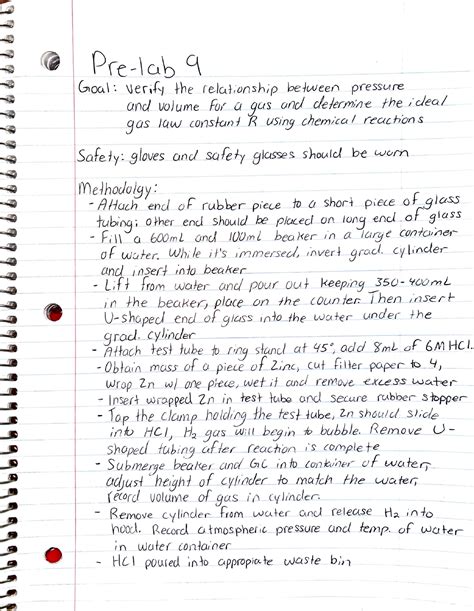 Pre-lab 9
Goal: verify the relationship between pressure
and volume for a gas and determine the ideal
gas law constant R using chemical reactions
Safety: gloves and safety glasses should be worn
Methodolgy:
- Attach end of rubber piece to a short piece of glass
tubing; other end should be placed on long end of glass
- Fill a 600mL and 100mL beaker in a large container
of water. While it's immersed, invert grad. cylinder
and insert into beaker
- Lift from water and pour out keeping 350-400mL
in the beaker, place on the counter. Then insert
U-shaped end of glass into the water under the
grad. cylinder
- Attach test tube to ring stand at 45°, add 8mL of 6M HCl.
- Obtain mass of a piece of Zinc, cut filter paper to 4,
wrap Zn w/ one piece, wet it and remove excess water
- Insert wrapped Zn in test tube and secure rubber stopper
- Tap the clamp holding the test tube, Zn should slide
into HCl, H₂ gas will begin to bubble. Remove U-
shaped tubing after reaction is complete
- Submerge beaker and GC into container of water,
adjust height of cylinder to match the water,
record volume of gas in cylinder.
- Remove cylinder from water and release H₂ into
hood. Record atmospheric pressure and temp. of water
in water container
- HCl poured into appropiate waste bin